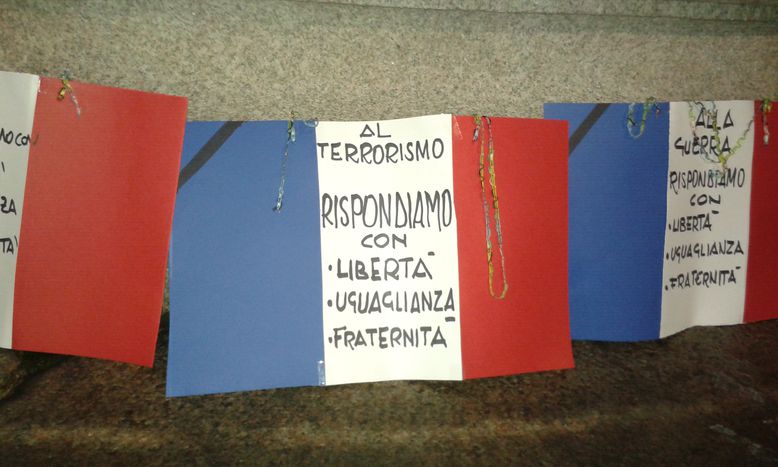 CON
ZA
TÀ
AL
TERRORISMO
RISPONDIAMO
CON
• LIBERTÀ
• UGUAGLIANZA
• FRATERNITÀ
ALLA
GUERRA
RISPONDIAMO
CON
• LIBERTÀ
• UGUAGLIANZA
• FRATERNITÀ